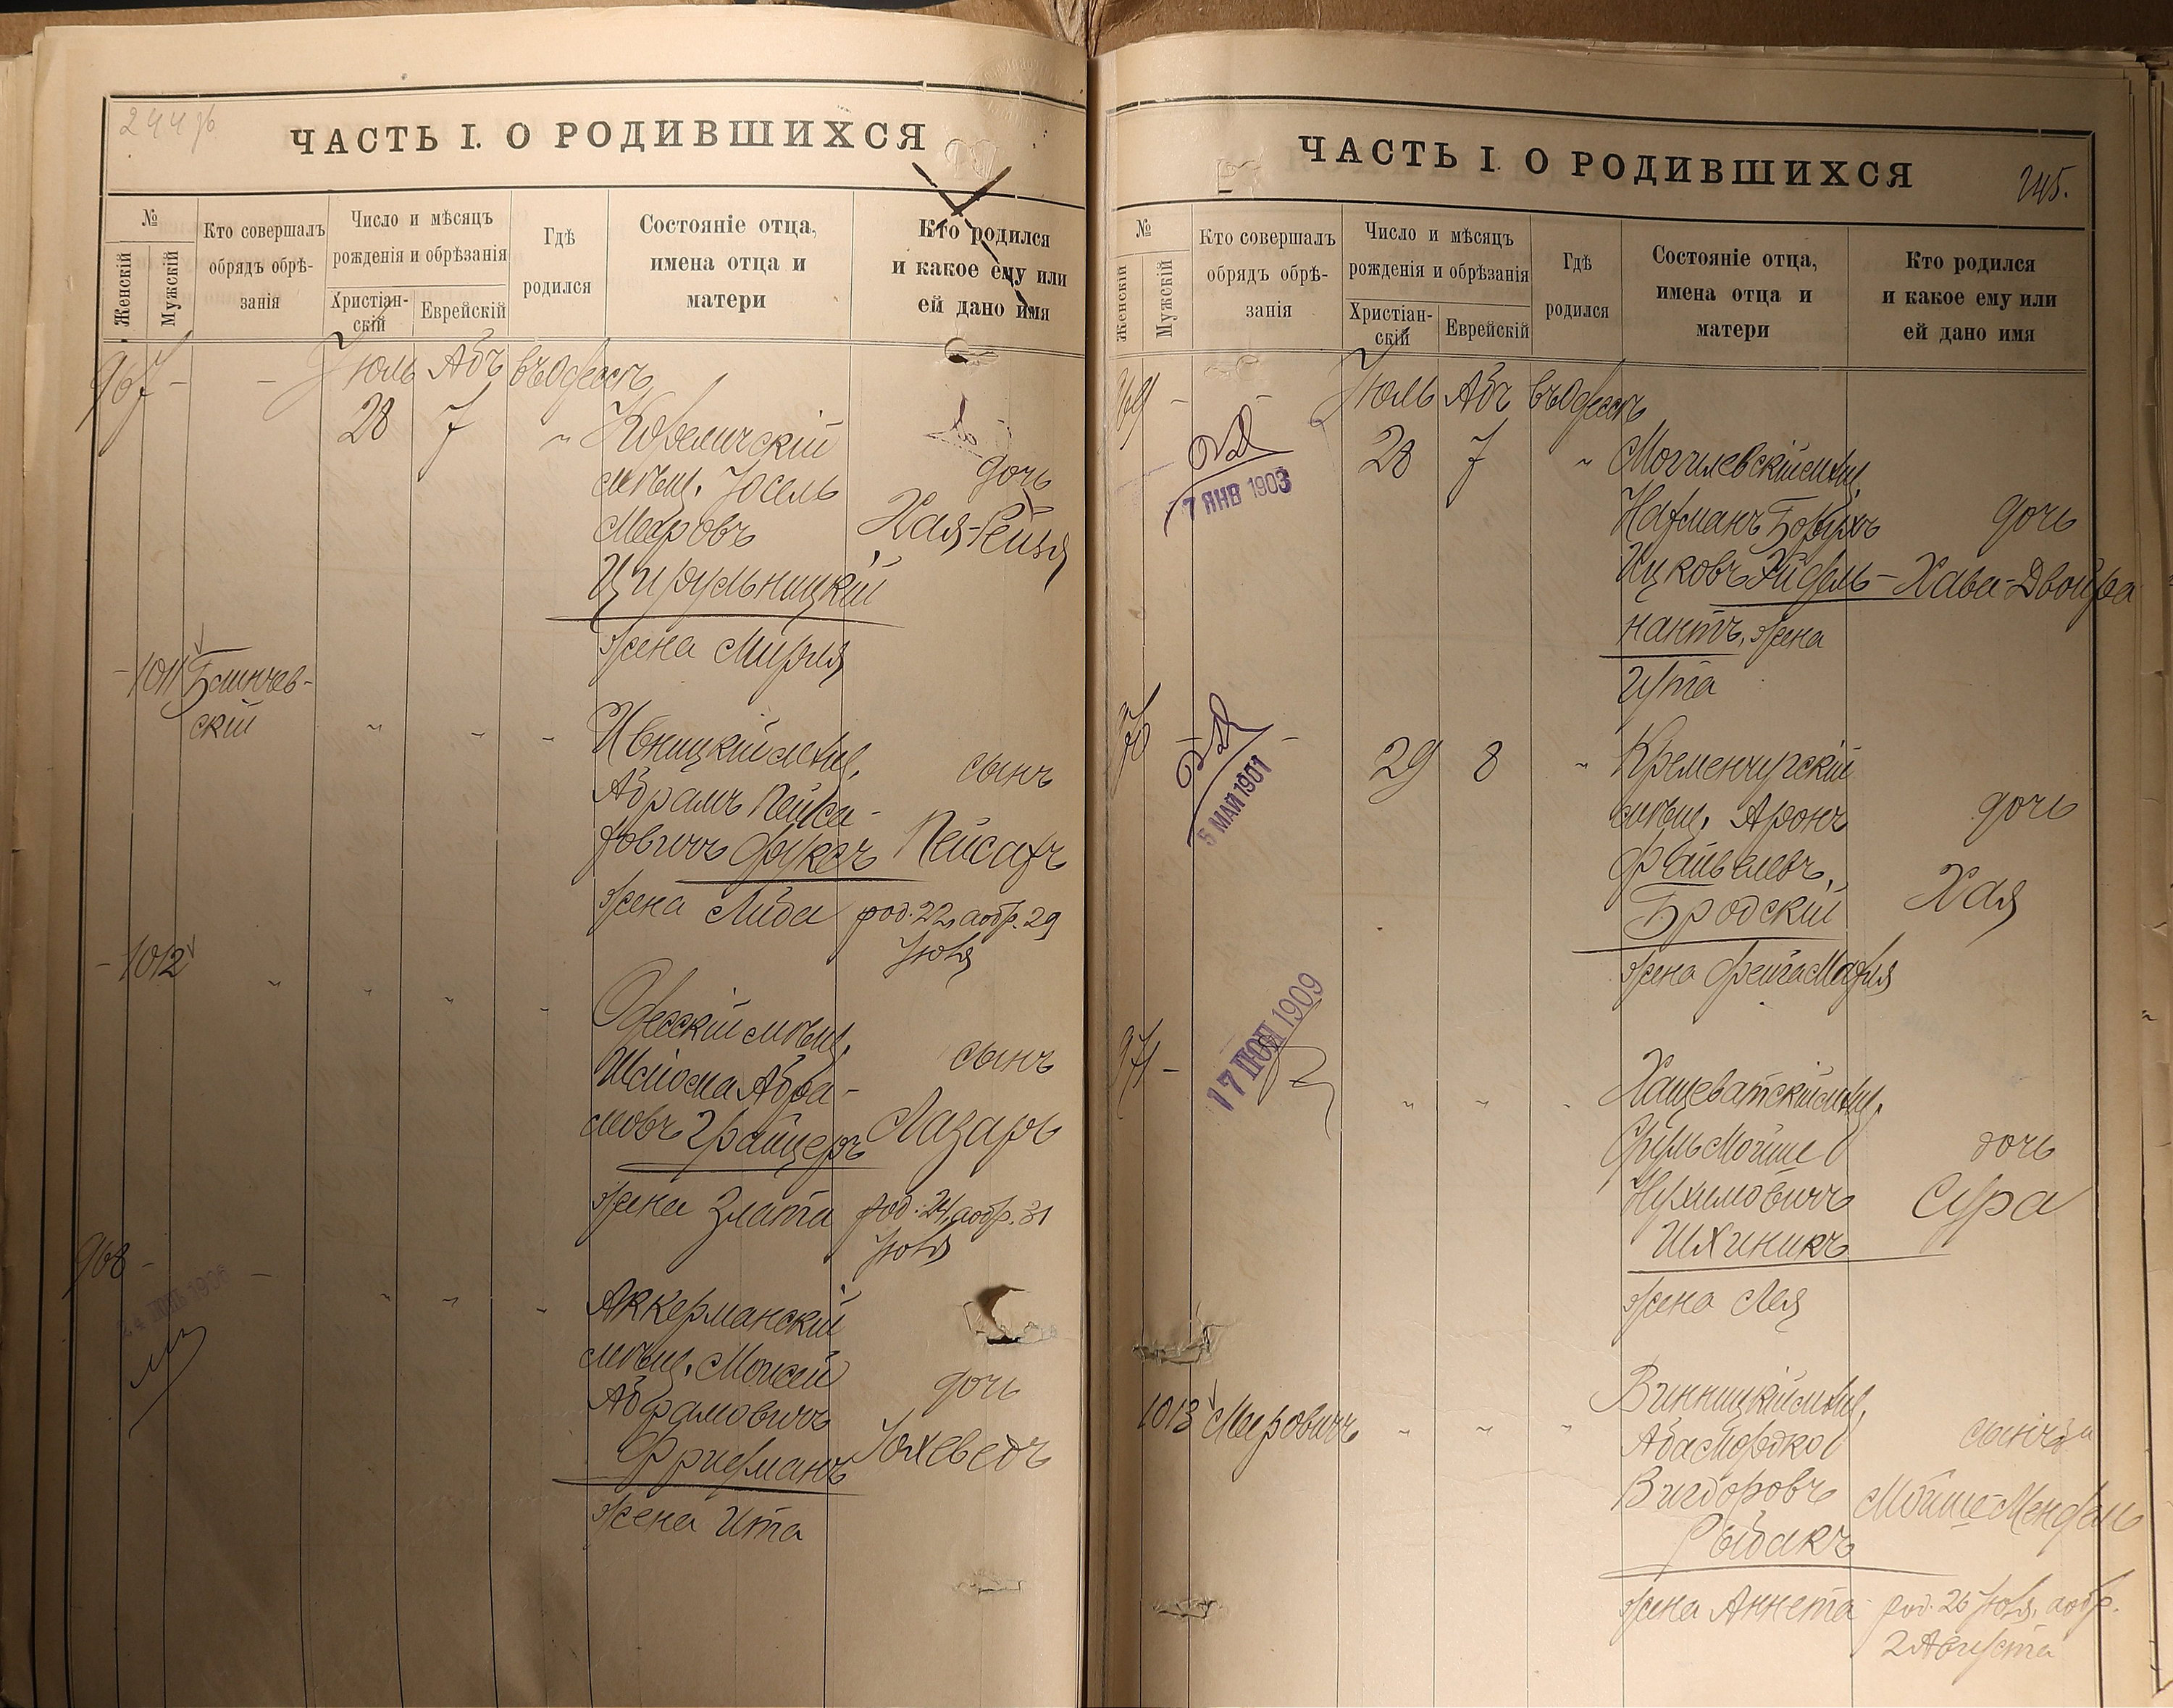 ЧАСТЬ I. О РОДИВШИХСЯ
№
Женскій
Мужскій
Кто совершалъ
обрядъ обрѣ-
занія
Число и мѣсяцъ
рожденія и обрѣзанія
Христіан-
скій
Еврейскій
Гдѣ
родился
Состояніе отца,
имена отца и
матери
Кто родился
и какое ему или
ей дано имя
967 - - Іюль Абъ въ Одессѣ
28 7 "
мѣщ. Іосель
Меировъ
Цирульницкій
жена Мирля
дочь
Хая-Рейзя
- 1011
ский
Ивницкій мѣщ.
Абрамъ Пейса-
ховичъ Фуксъ
жена Либа
сынъ
Пейсахъ
род. 22, а обр. 29
Іюля
- 1012
Одесскій мѣщ.
Шліома Абра-
мовъ Грайцеръ
жена Злата
сынъ
Лазарь
род. 24, а обр. 31
Іюля
968 -
Аккерманскій
мѣщ. Моисей
Абрамовичъ
Фридманъ
жена Ита
дочь
Юхеведъ
ЧАСТЬ I. О РОДИВШИХСЯ
245.
№
Женскій
Мужскій
Кто совершалъ
обрядъ обрѣ-
занія
Число и мѣсяцъ
рожденія и обрѣзанія
Христіан-
скій
Еврейскій
Гдѣ
родился
Состояніе отца,
имена отца и
матери
Кто родился
и какое ему или
ей дано имя
969 - - Іюль Абъ въ Одессѣ
7 ЯНВ 1903
28 7 "
Могилевскій мѣщ.
Нахманъ Борухъ
Ицковъ Эйдель-
нантъ, жена
Ита
дочь
Хава-Двойра
970 - -
5 МАЙ 1901
29 8 "
Кременчугскій
мѣщ. Аронъ
Файвелевъ
Бродскій
жена Фейга Марля
дочь
Хая
971 -
1909
Хащеватскій мѣщ.
Сруль Мойше
Нухимовичъ
Шхиникъ
жена Лея
дочь
Сура
1013 Меировичъ
Винницкій мѣщ.
Аба Мордко
Вигдоровъ
Рыбакъ
жена Аннета
сынъ
Мойше-Мендель
род. 26 Іюля, а обр.
2 Августа